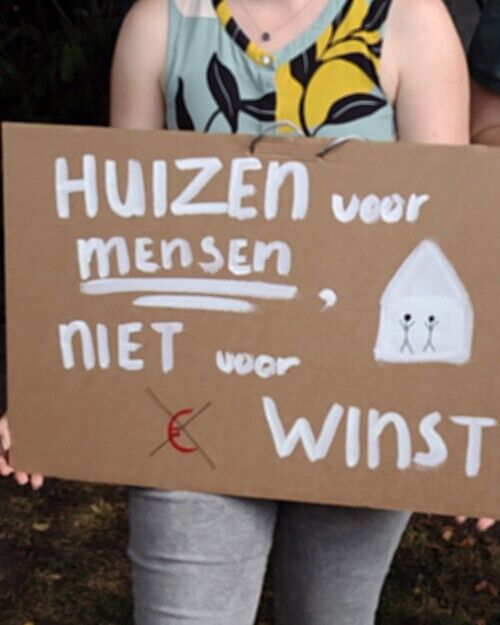 HUIZEN voor
MENSEN,
NIET voor
€ WINST